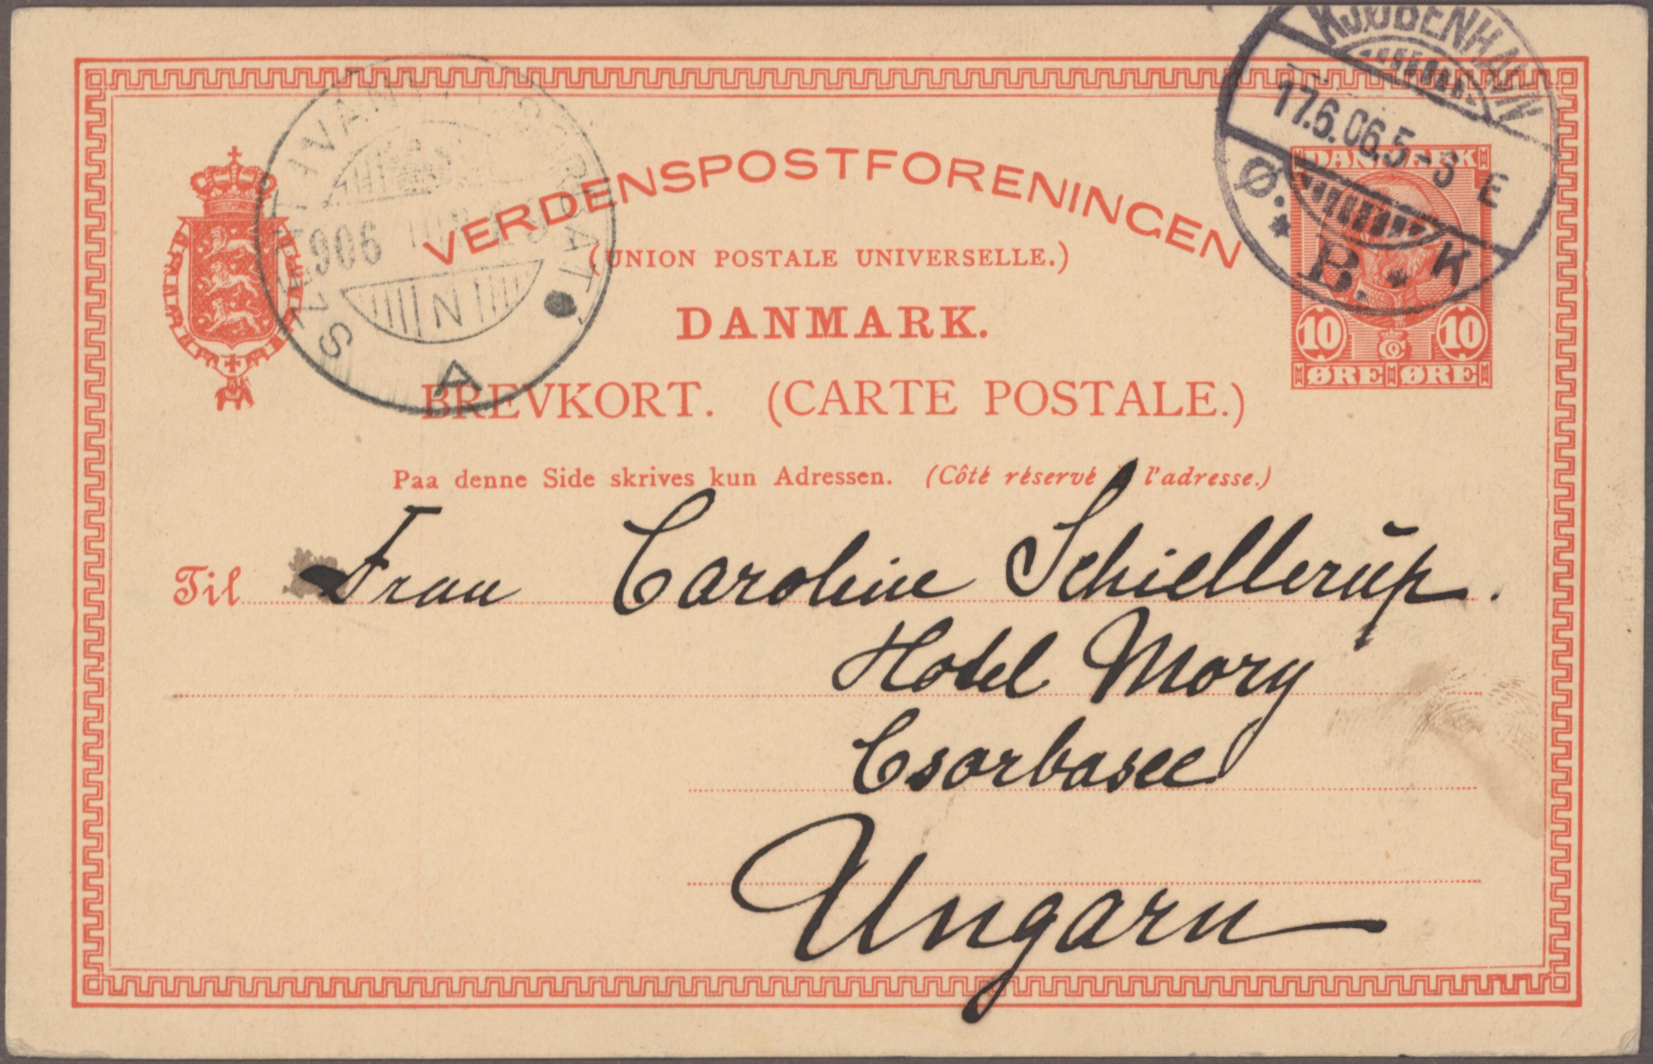 KJØBENHAVN
17.6.06.5-3 E
Ø.* B.* K
1906
N
A
VERDENSPOSTFORENINGEN
(UNION POSTALE UNIVERSELLE.)
DANMARK
10 10
ØRE ØRE
DANMARK.
BREVKORT. (CARTE POSTALE.)
Paa denne Side skrives kun Adressen. (Côté réservé à l'adresse.)
Til Frau Caroline Schiellerup.
Hotel Mory
Csorbasee
Ungarn